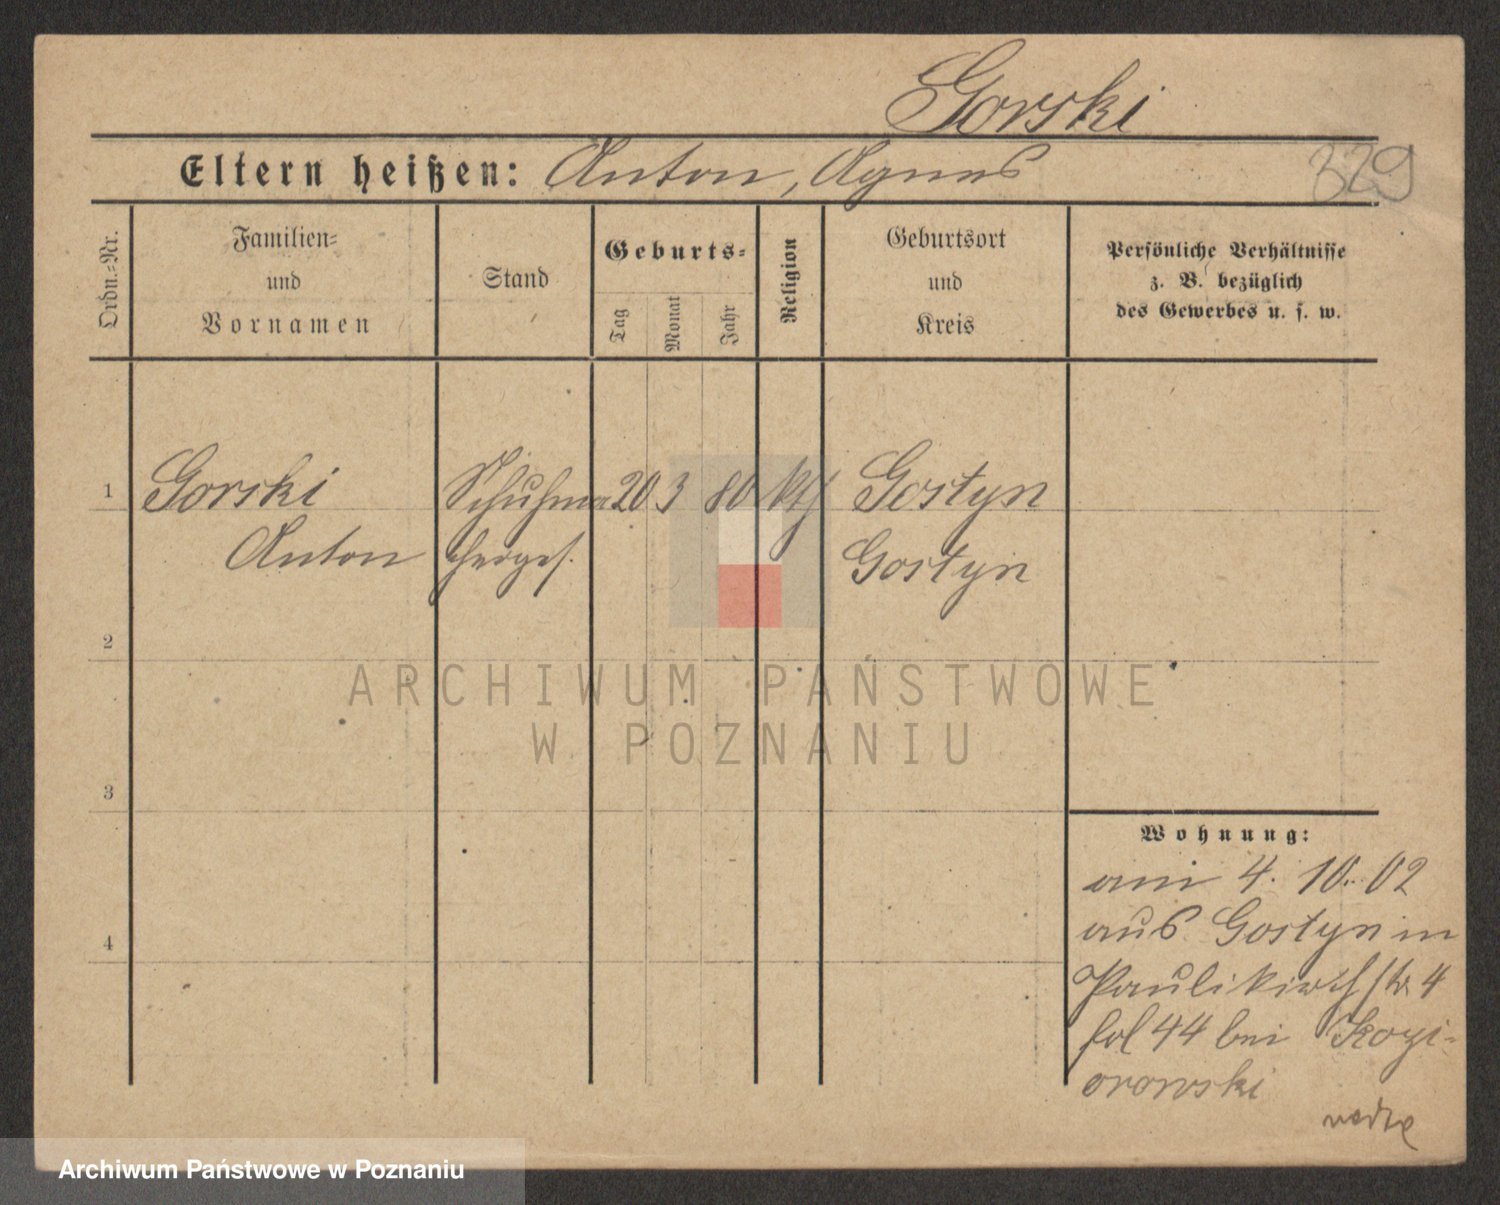 Gorski
Eltern heißen: Anton, Agnes
329
Ordn.=Nr.
Familien=
und
Vornamen
Stand
Geburts=
Tag
Monat
Jahr
Religion
Geburtsort
und
Kreis
Persönliche Verhältnisse
z. B. bezüglich
des Gewerbes u. s. w.
1 Gorski Schuhma 20 3 80 kth Gostyn
Anton cherges. Gostyn
2
ARCHIWUM PAŃSTWOWE
W POZNANIU
3
4
Wohnung:
am 4. 10. 02
aus Gostyn in
Paulikirchstr. 4
fol 44 bei Kozi-
orowski
Archiwum Państwowe w Poznaniu